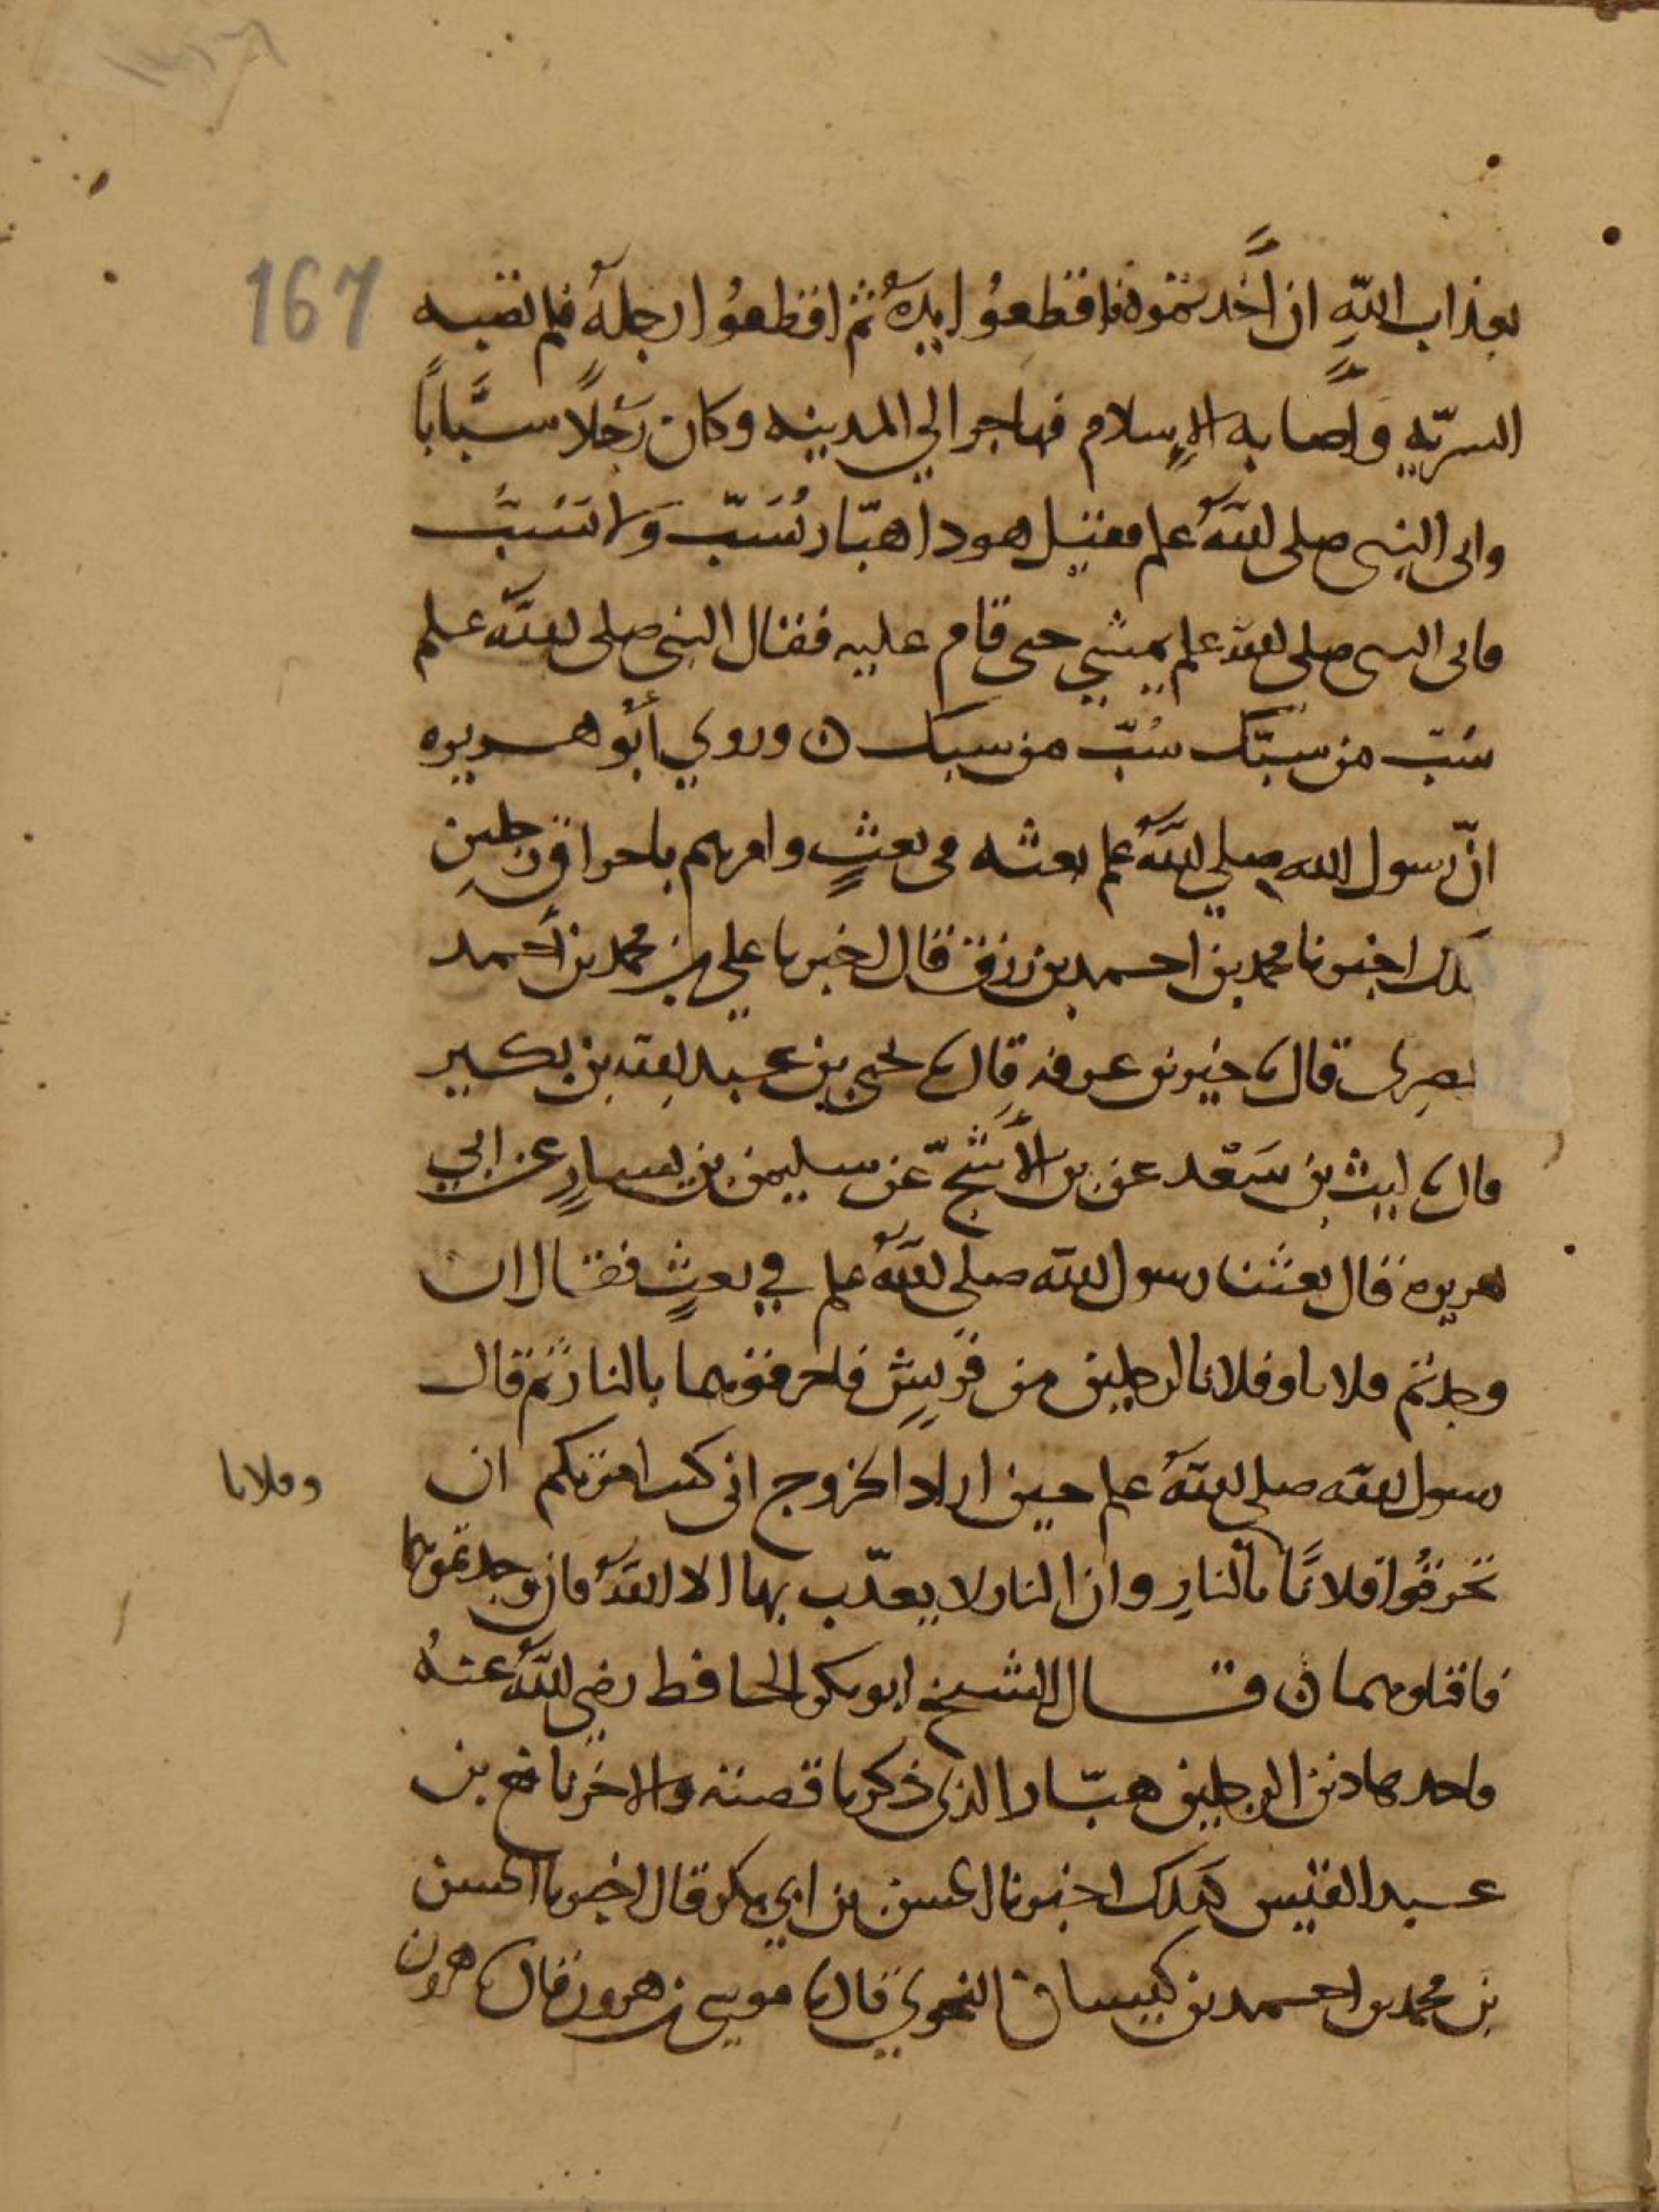 167
بعذاب الله ان اخذتموه فاقطعوا يده ثم اقطعوا رجله فلم تصبه
السريّه وأصابه الإسلام فهاجر الي المدينه وكان رَجُلاً سبَّابًا
واتى النبي صلى الله علم فقيل هوذا هبّار يُسَبّ ولا يَسُبُّ
فاتى النبي صلى الله علم يمشي حتى قام عليه فقال النبي صلى الله علم
سُبّ من سبّك سُبّ من سبك ن وروي أبو هريره
انّ رسول الله صلي الله علم بعثه في بعثٍ وامرهم باحراق رجلين
كذلك اخبرنا محمد بن احمد بن رزق قال اخبرنا علي بن محمد بن أحمد
المصرى قال نا خير بن عرفه قال نا يحيى بن عبد الله بن بكير
قال نا ليث بن سَعْد عن بن الأشَجّ عن سليمن بن يسارٍ عن ابي
هريره قال بعثنا رسول الله صلى الله علم في بعثٍ فقال ان
وجدتم فلانا وفلانا لرجلين من قريشٍ فاحرقوهما بالنار ثم قال
رسول الله صلى الله علم حين اراد الخروج انى كنت امرتكم ان
تحرقُوا فلانًا بالنارِ وان النار لا يعذّب بها الا الله فان وجدتموهما
وفلانا
فاقتلوهما ن قال الشيخ ابو بكر الحافظ رضى الله عنه
واحد هاذين الرجلين هبّار الذى ذكرنا قصته والاخر نافع بن
عبد القيس كذلك اخبرنا الحسن بن ابي بكر قال اخبرنا الحسن
بن محمد بن احمد بن كيسان النحوي قال نا موسى بن هرون قال نا هرون